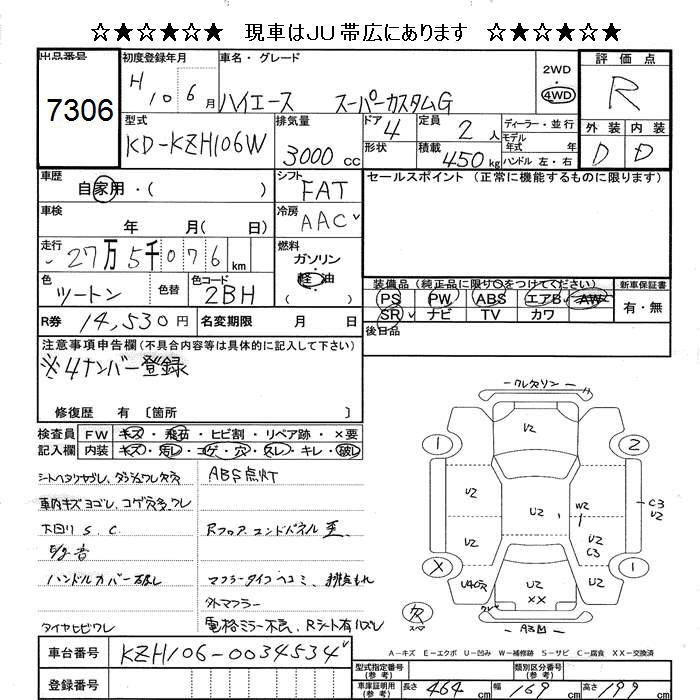 ☆★☆★☆★ 現車はJU帯広にあります ☆★☆★☆★
出品番号
7306
初度登録年月
H 10 6月
車名・グレード
ハイエース スーパーカスタムG
2WD
・
4WD
評価点
R
外装 内装
D D
型式
KD-KZH106W
排気量
3000cc
ドア 4
形状
定員 2人
積載 450kg
ディーラー・並行
モデル
年式 年
ハンドル 左・右
車歴
自家用・( )
シフト
FAT
車検
年 月( 日)
冷房
AAC
走行
27万5千076km
燃料
ガソリン
・
軽油
( )
色
ツートン
色替
色コード
2BH
R券 14,530円
名変期限 月 日
セールスポイント(正常に機能するものに限ります)
装備品(純正品に限り○をつけてください)
PS PW ABS エアB AW
SR ナビ TV カワ
新車保証書
有・無
後日品
注意事項申告欄(不具合内容等は具体的に記入して下さい)
※4ナンバー登録
修復歴 有〔箇所 〕
検査員 FW キズ・飛石・ヒビ割・リペア跡・×要
記入欄 内装 キズ・汚レ・コゲ・穴・スレ・キレ・破レ
ABS点灯
車内キズヨゴレ、コゲ穴多、ワレ
下回りS、C
Rフロア、エンドパネル
ハンドルカバー破レ
マフラータイコヘコミ、排気もれ
外マフラー
タイヤヒビワレ
電格ミラー不良、Rシート有
1 2
U2
U2 U2 W2 U2
1
C3
U2
U2 U2
C3
X 1
U2
××
U2
A-キズ E-エクボ U-凹み W-補修跡 S-サビ C-腐食 XX-交換済
車台番号 KZH106-0034534
登録番号
型式指定番号
(参考)
類別区分番号
(参考)
車庫証明用
(参考)
長さ 464cm 幅 169cm 高さ 199cm